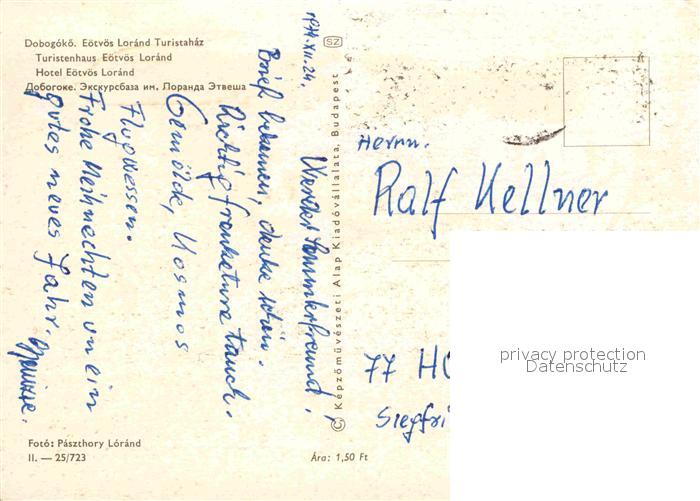 Dobogókő. Eötvös Loránd Turistaház
Turistenhaus Eötvös Loránd
Hotel Eötvös Loránd
Добогоке. Экскурсбаза им. Лоранда Этвеша
XII.24.
Werter Sammlerfreund!
Brief bekamen, danke schön.
Richtig frankature tausch.
Gemälde, Kosmos
Flugwessen.
Frohe Weihnachten un ein
gutes neues Jahr.
Fotó: Pászthory Lóránd
II. — 25/723
SZ
© Képzőművészeti Alap Kiadóvállalata, Budapest
Ára: 1,50 Ft
Herrn.
Ralf Kellner
77 HO
Siegfri
privacy protection
Datenschutz